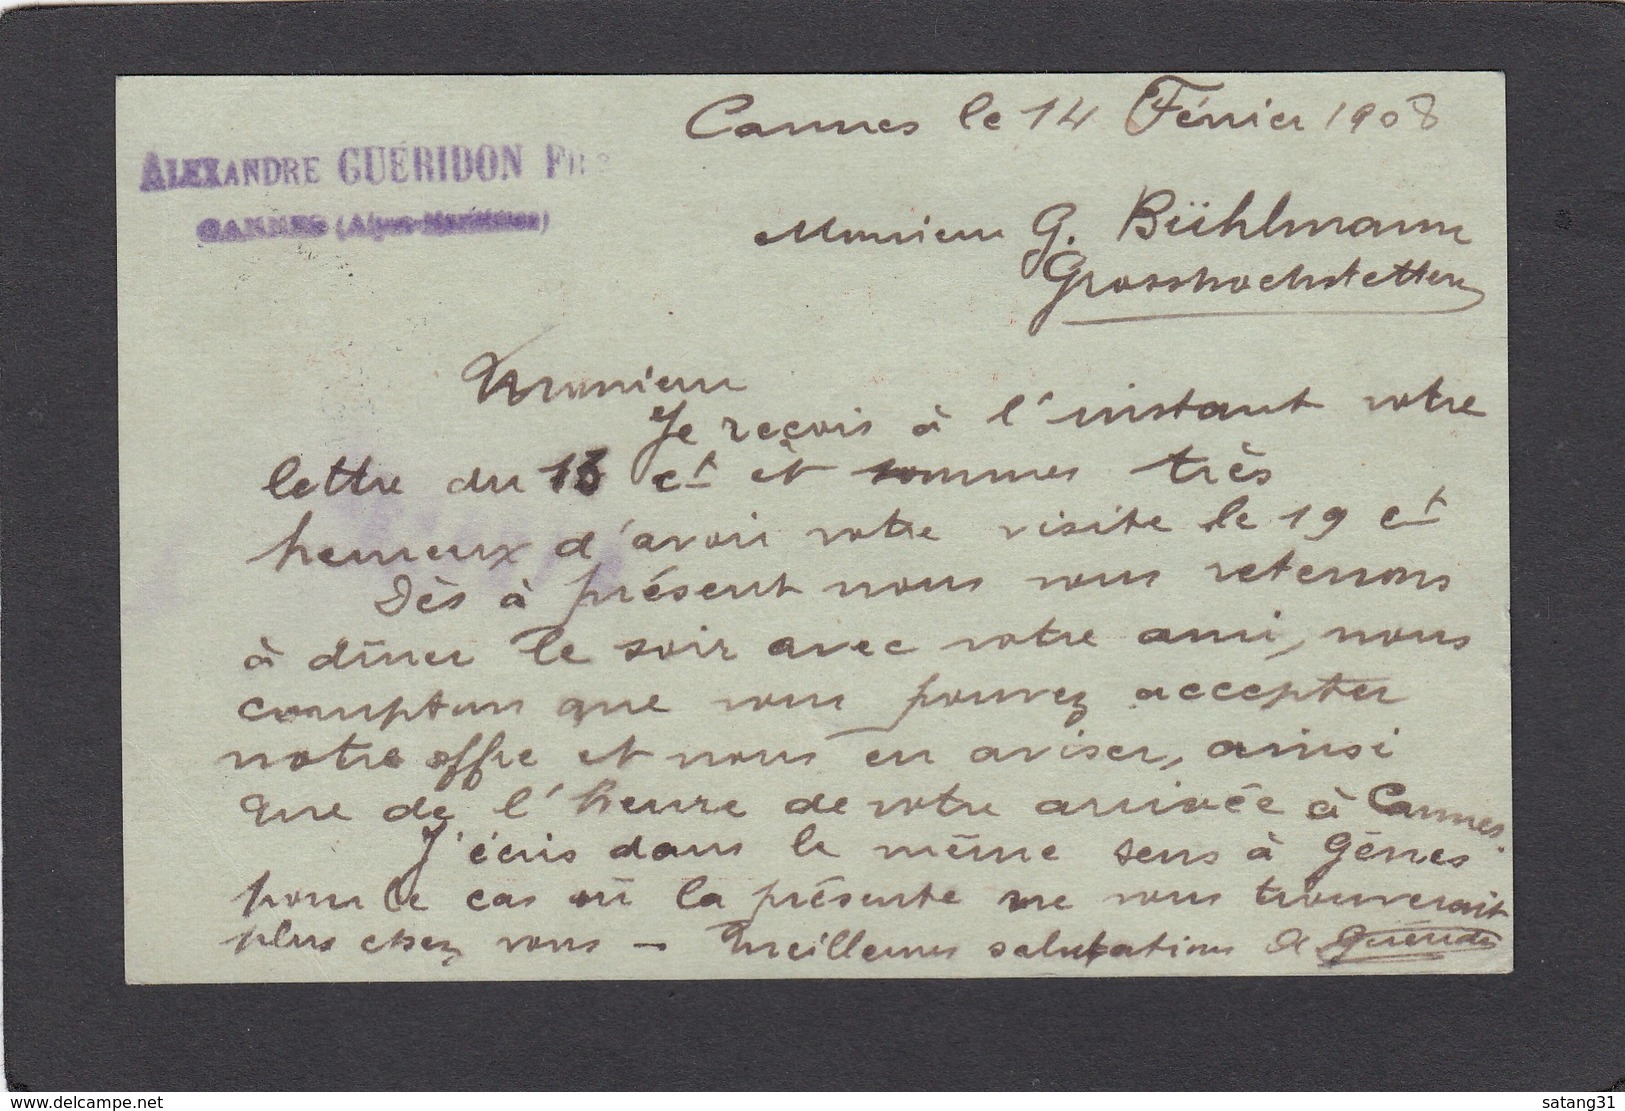 Cannes le 14 Février 1908
ALEXANDRE GUÉRIDON FILS
CANNES (Alpes-Maritimes)
Monsieur G. Bühlmann
Grosshochstetten
Monsieur
Je reçois à l'instant votre
lettre du 13 ct et sommes très
heureux d'avoir votre visite le 19 ct
Dès à présent nous vous retenons
à dîner le soir avec votre ami, nous
comptons que vous pouvez accepter
notre offre et nous en aviser, ainsi
que de l'heure de votre arrivée à Cannes.
J'écris dans le même sens à Gênes
pour le cas où la présente ne vous trouverait
plus chez vous - Meilleures salutations A Guéridon
www.delcampe.net
satang31